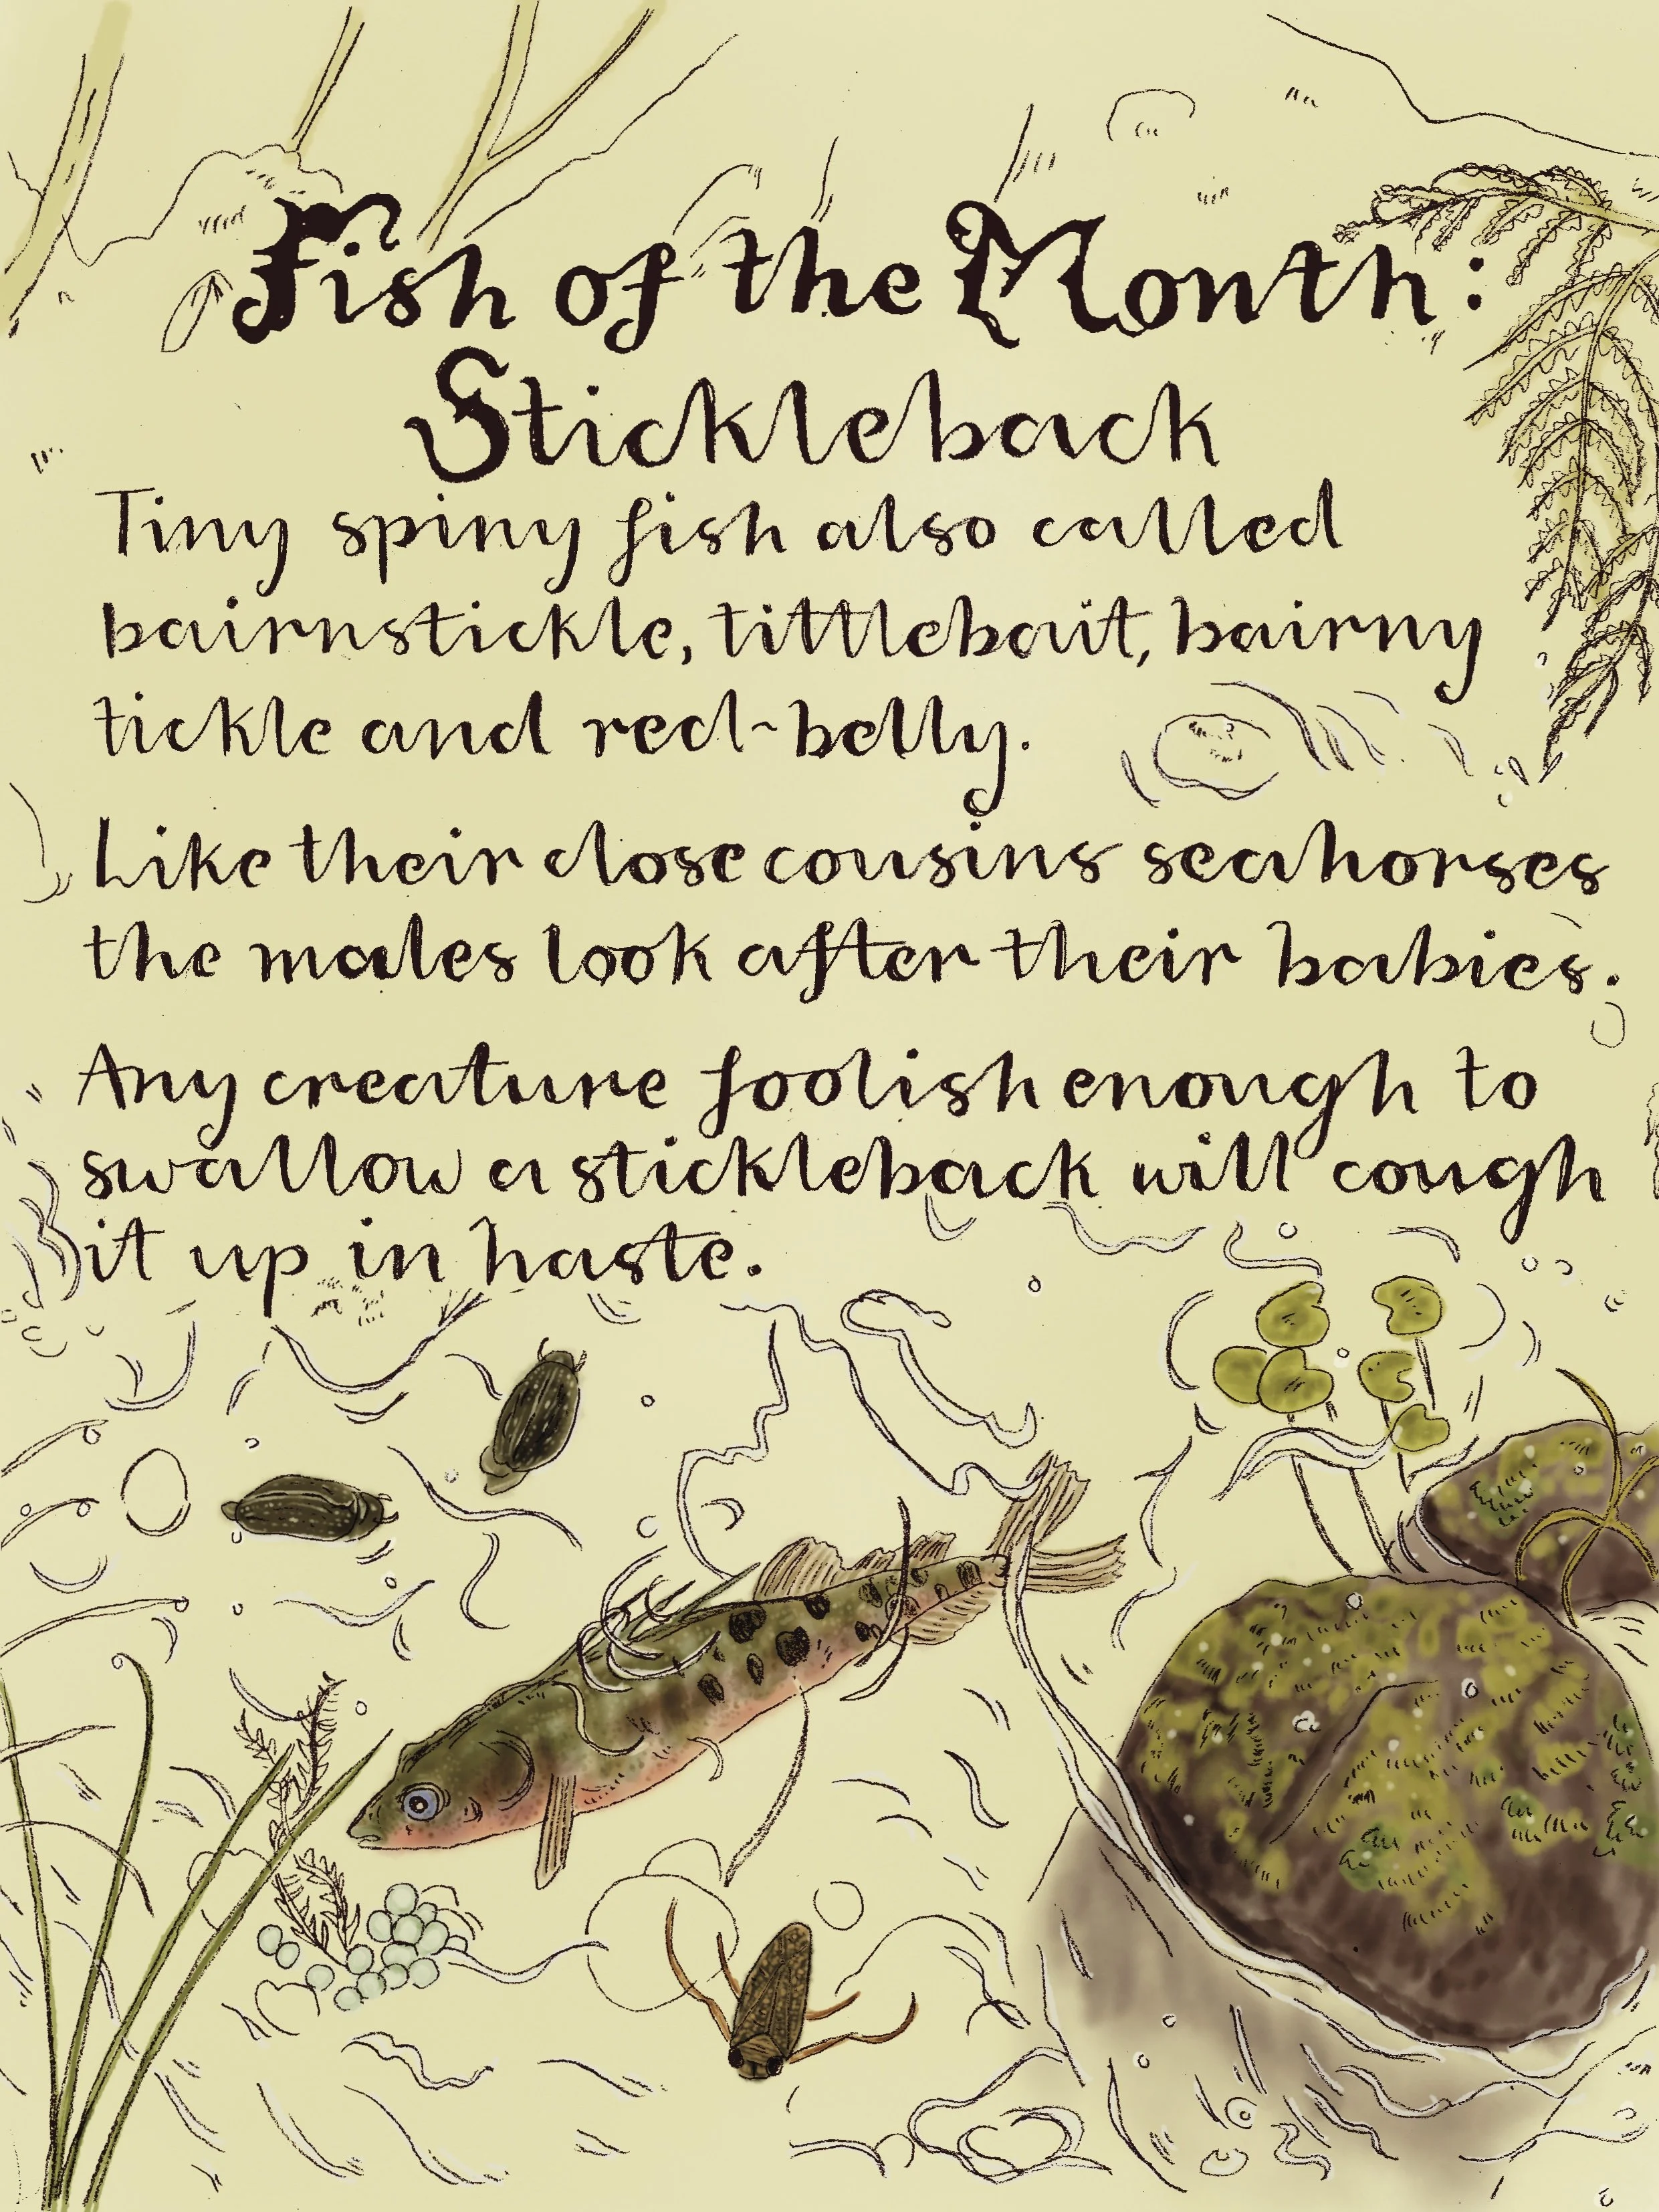 Fish of the Month:
Stickleback
Tiny spiny fish also called
bairnstickle, tittlebait, bairny
tickle and red-belly.
Like their close cousins seahorses
the males look after their babies.
Any creature foolish enough to
swallow a stickleback will cough
it up in haste.